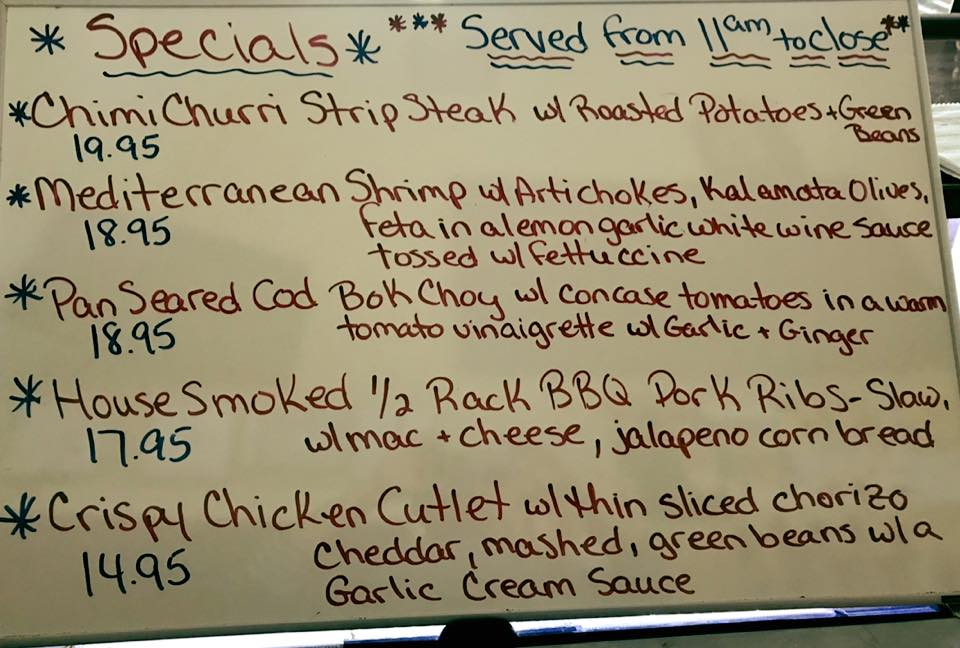 * Specials * *** Served from 11am to close **
* Chimi Churri Strip Steak w/ Roasted Potatoes + Green
Beans
19.95
* Mediterranean Shrimp w/ Artichokes, Kalamata Olives,
18.95 Feta in a lemon garlic white wine sauce
tossed w/ Fettuccine
* Pan Seared Cod Bok Choy w/ concase tomatoes in a warm
18.95 tomato vinaigrette w/ Garlic + Ginger
* House Smoked 1/2 Rack BBQ Pork Ribs - Slaw,
17.95 w/ mac + cheese, jalapeno corn bread
* Crispy Chicken Cutlet w/ thin sliced chorizo
14.95 Cheddar, mashed, green beans w/ a
Garlic Cream Sauce